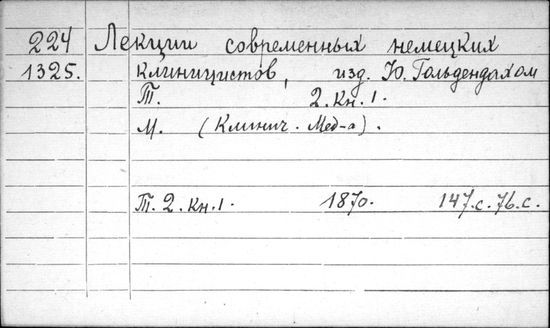 224 Лекции современных немецких
1325. клиницистов, изд. Ю. Гольдендахом
Т. 2. Кн. 1.
М. (Клинич. Мед-а).
Т. 2. Кн. 1. 1870. 147.с. 76.с.